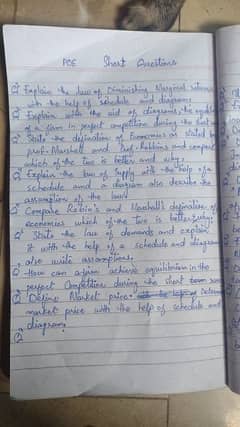 POE Short Questions
Q Explain the law of Diminishing Marginal returns
with the help of schedule and diagrams.
Q Explain with the aid of diagrams, the
of a firm in perfect competition during the short
Q State the defination of Economics as stated by
prof. Marshall and Prof. Robbins and compare
which of the two is better and why.
Q Explain the law of Supply with the help of a
schedule and a diagram also describe the
assumption of the law?
Q Compare Robin's and Marshall's defination of
economics which of the two is better & why.
Q State the law of demands and explain
it with the help of a schedule and diagram
also write assumptions.
Q How can a firm achieve equilibrium in the
perfect Competition during the short
Q Define Market price.
market price with the help of schedule and
diagram?
Q